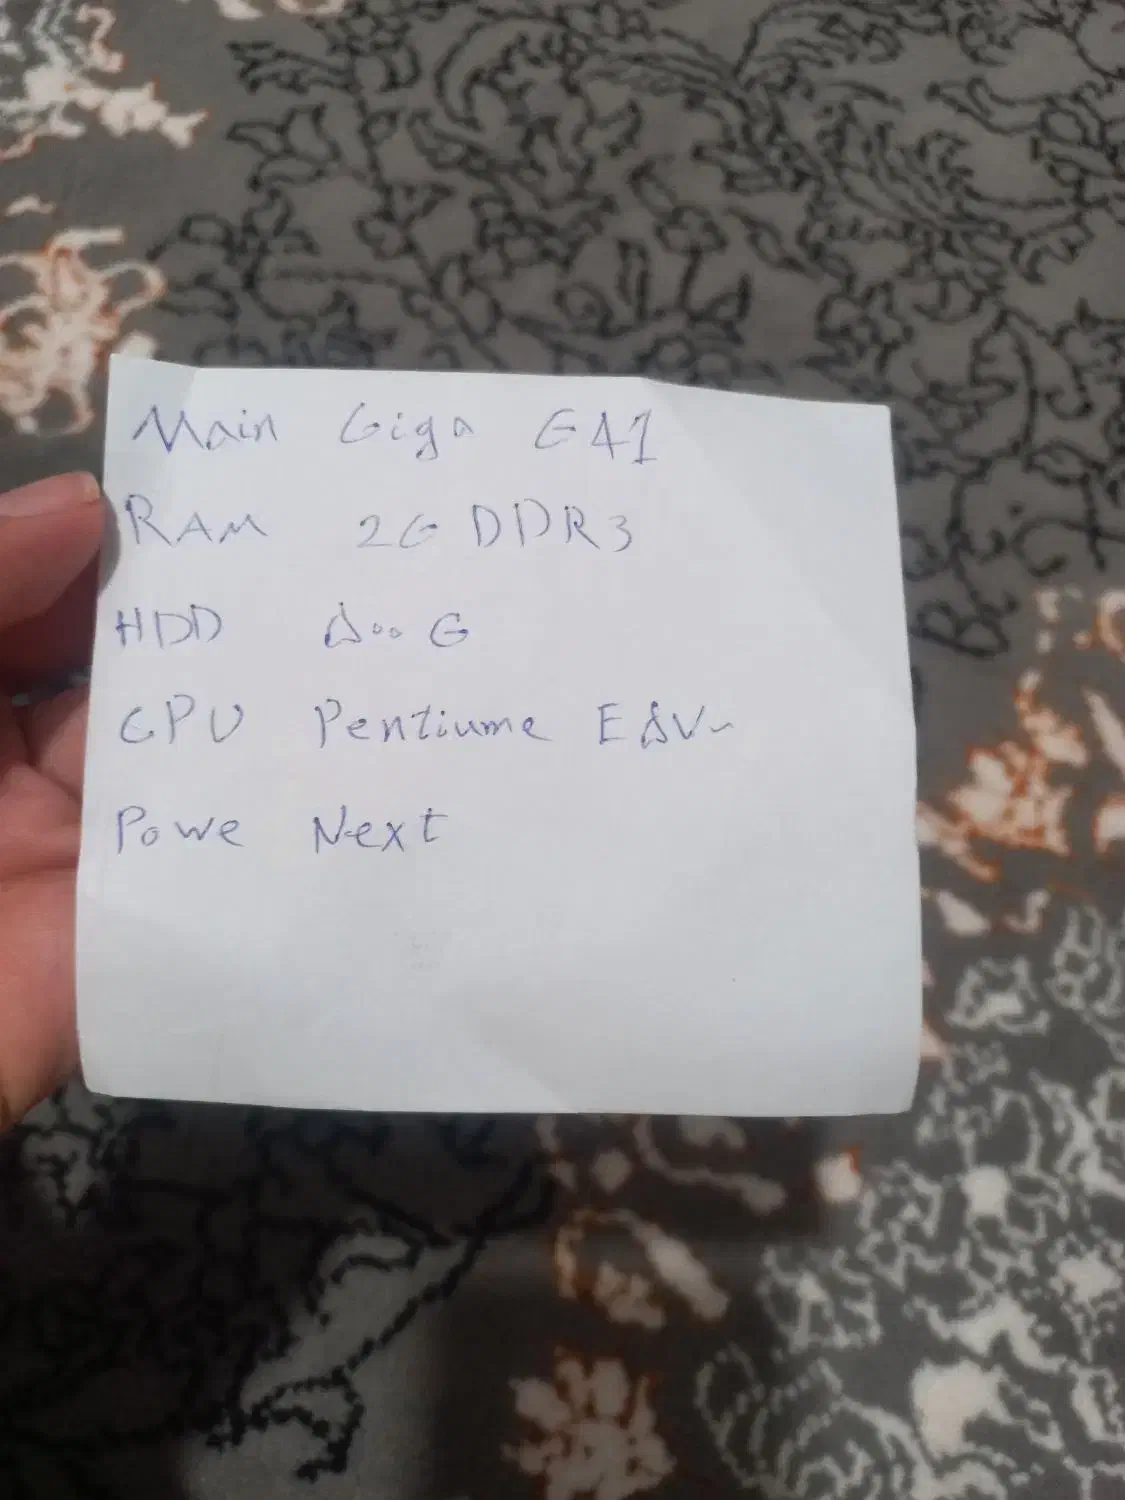 Main Giga G41
RAM 2G DDR3
HDD ۵۰۰ G
CPU Pentiume E۵۷۰۰
Powe Next